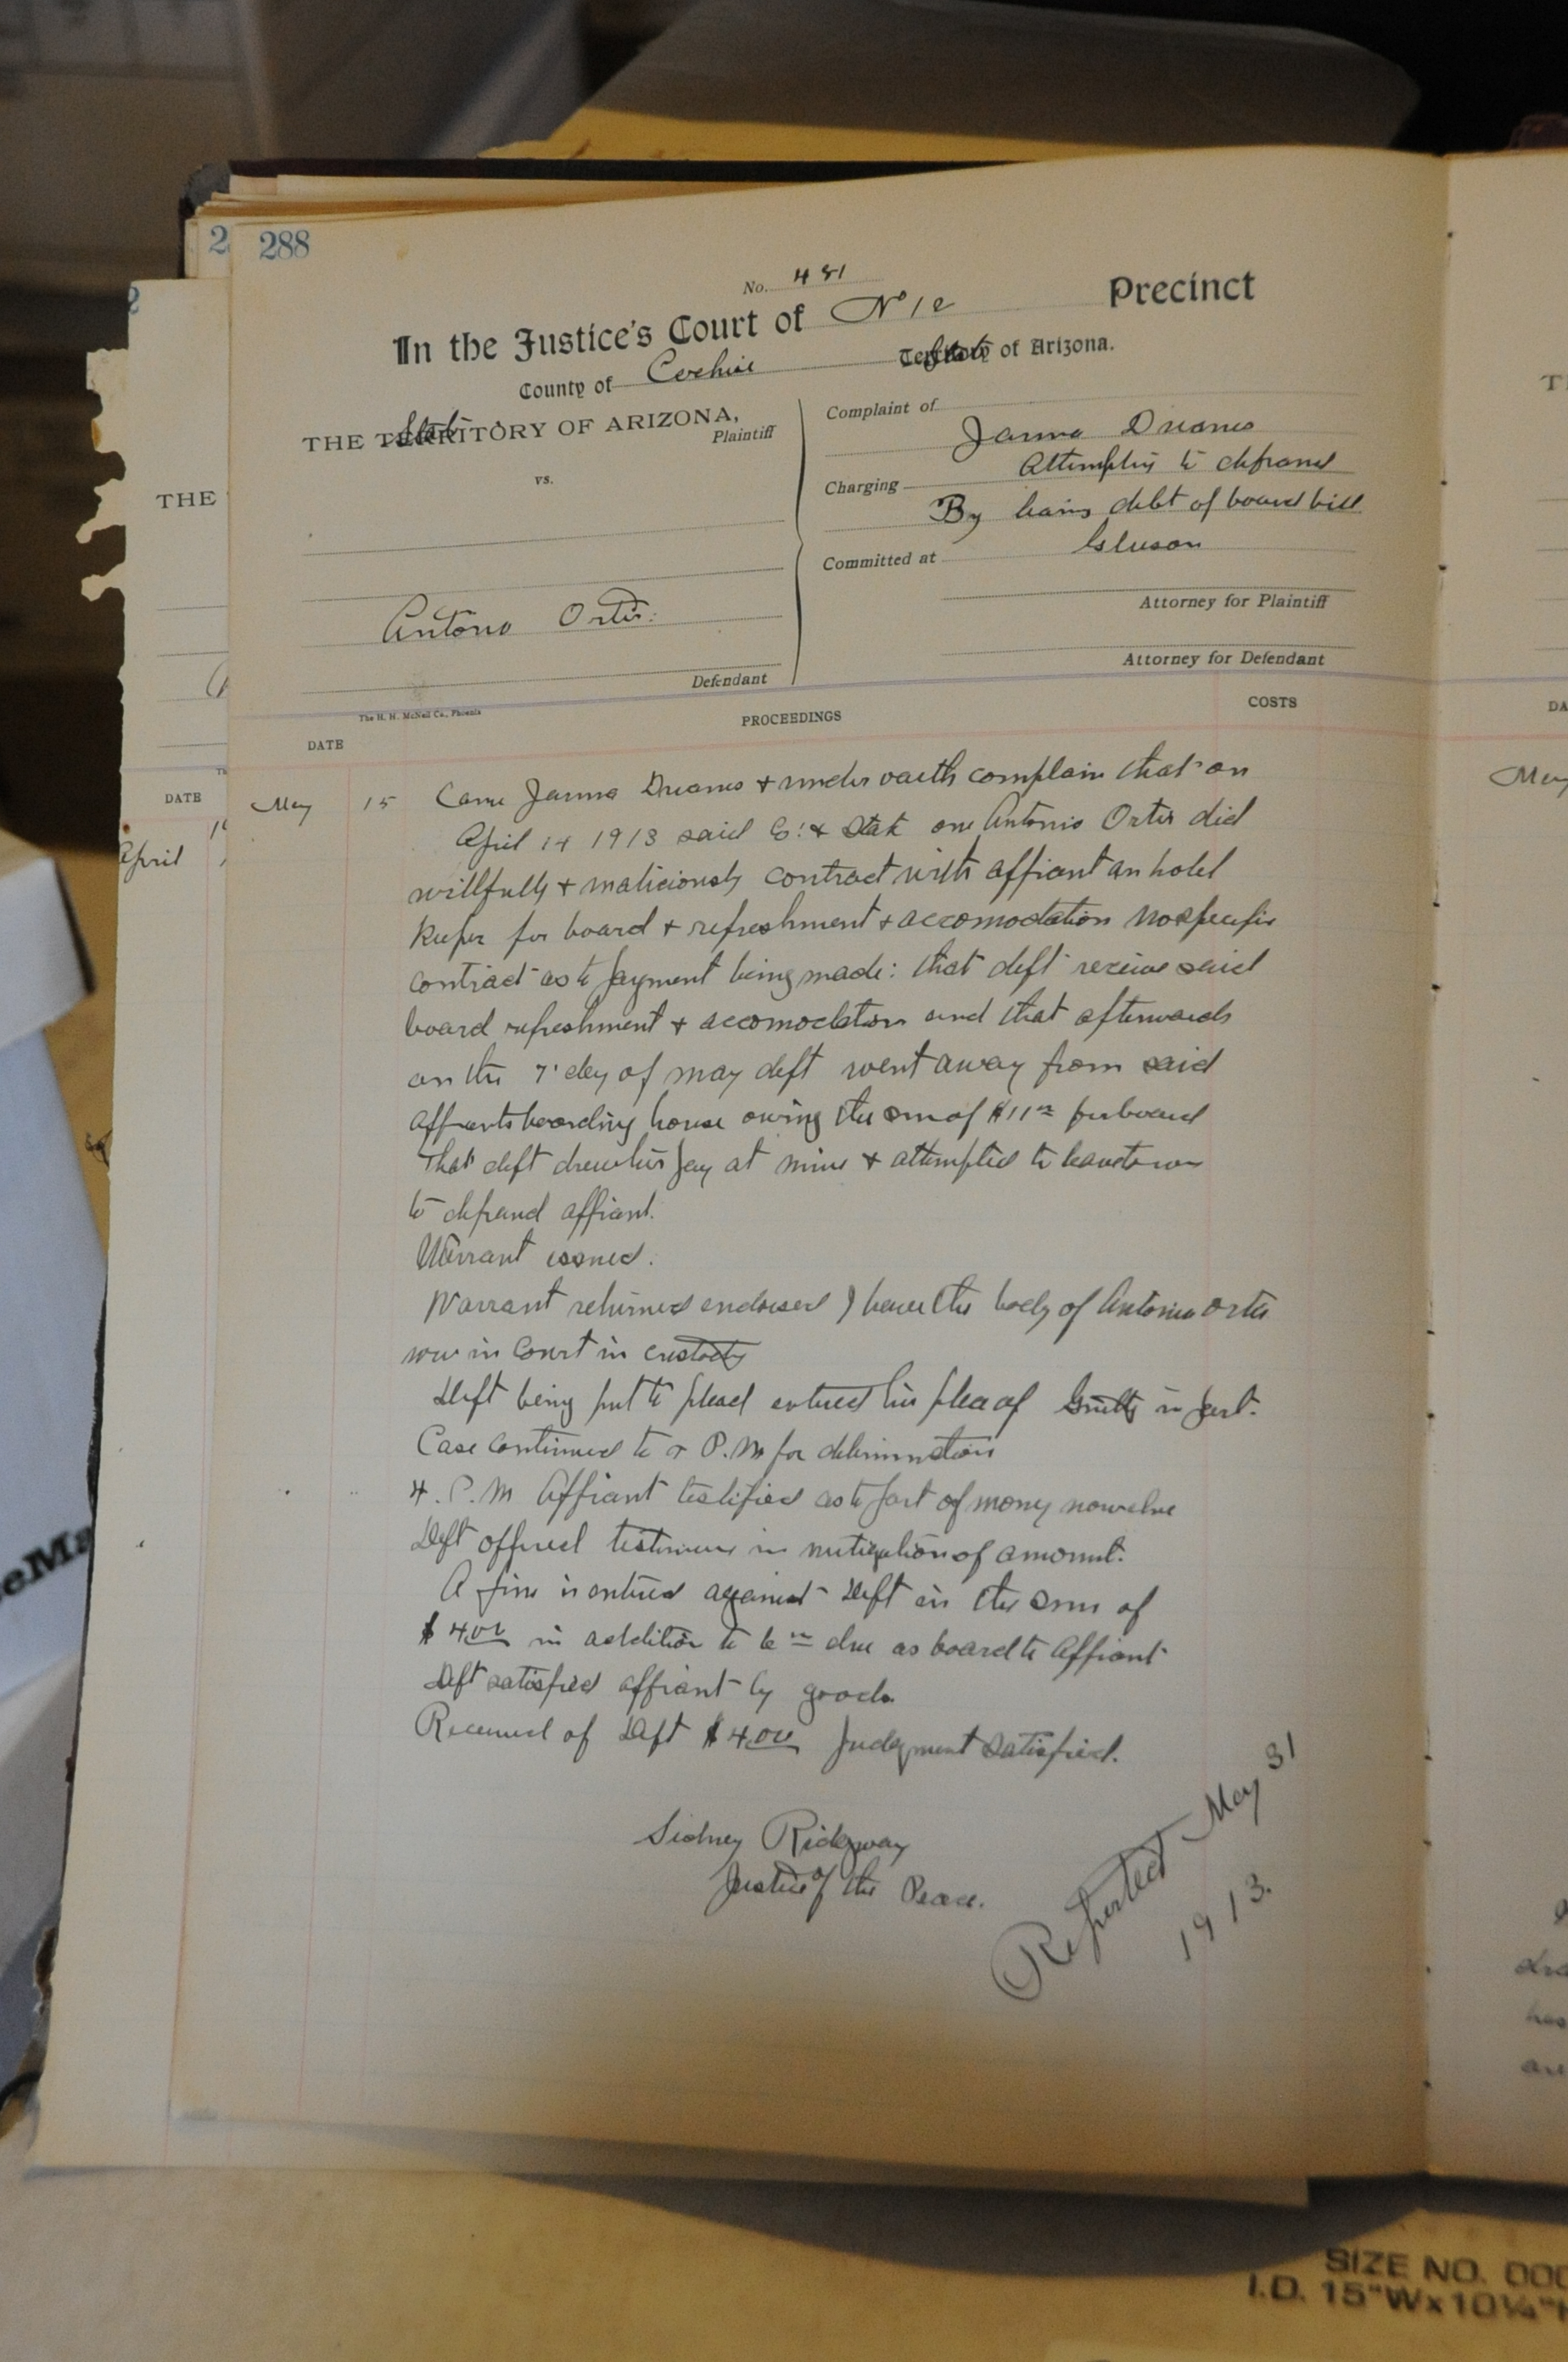 2
288
No. 481
In the Justice's Court of No 12 Precinct
County of Cochise State of Arizona.
THE State OF ARIZONA,
Plaintiff
vs.
Antonio Ortis.
Defendant
Complaint of
Charging Attempting to defraud
By leaving debt of board bill
Committed at Gleeson
Attorney for Plaintiff
Attorney for Defendant
The H. H. McNeil Co., Phoenix
DATE
PROCEEDINGS
COSTS
May 15 Came & under oath complain that on
April 14 1913 said Co. & State one Antonio Ortis did
willfully & maliciously contract with affiant an hotel
keeper for board & refreshment & accomodation no specific
contract as to payment being made: that deft receive said
board refreshment & accomodation and that afterwards
on the 7 day of May deft went away from said
affiants boarding house owing the sum of $11 for board
That deft drew his pay at mine & attempted to leave town
to defraud affiant.
Warrant issued.
Warrant returned endorsed I have the body of Antonio Ortis
now in Court in custody
Deft being put to plead entered his plea of Guilty in part.
Case continued to P.M for determination
4. P.M Affiant testified as to part of money
Deft offered testimony in mitigation of amount.
A fine is entered against Deft in the sum of
$4.00 in addition to due as board to Affiant
Deft satisfied affiant by goods.
Received of Deft $4.00 Judgment Satisfied.
Sidney Ridgway
Justice of the Peace.
Reported May 31
1913.
THE
DATE
April
May
SIZE NO.
I.D. 15"W x 10¼"H